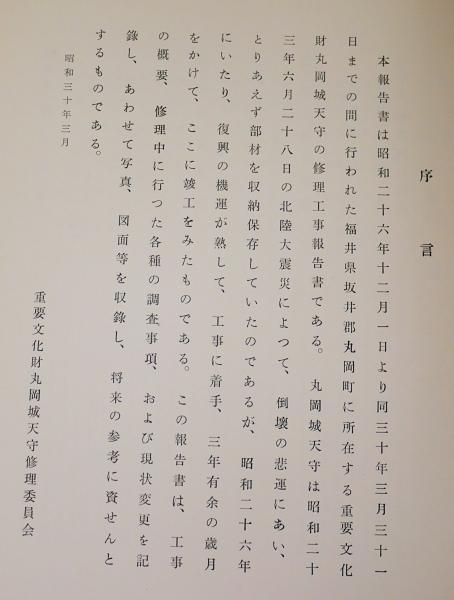 序言
本報告書は昭和二十六年十二月一日より同三十年三月三十一
日までの間に行われた福井県坂井郡丸岡町に所在する重要文化
財丸岡城天守の修理工事報告書である。丸岡城天守は昭和二十
三年六月二十八日の北陸大震災によつて、倒壊の悲運にあい、
とりあえず部材を収納保存していたのであるが、昭和二十六年
にいたり、復興の機運が熟して、工事に着手、三年有余の歳月
をかけて、ここに竣工をみたものである。この報告書は、工事
の概要、修理中に行つた各種の調査事項、および現状変更を記
録し、あわせて写真、図面等を収録し、将来の参考に資せんと
するものである。
昭和三十年三月
重要文化財丸岡城天守修理委員会